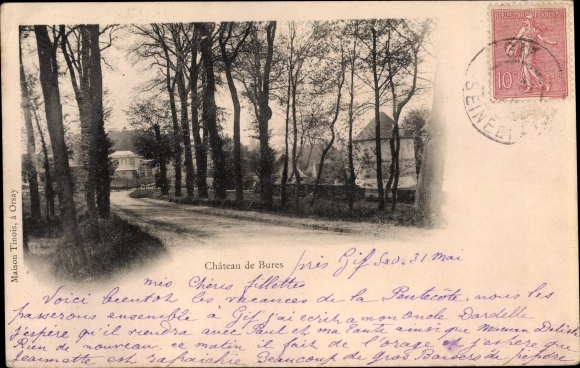 RÉPUBLIQUE FRANÇAISE
10c
SEINE ET
Maison Tinois, à Orsay
Château de Bures
près Gif S&O. 31 Mai
mes Chères fillettes
Voici bientot les vacances de la Pentecôte nous les
passerons ensemble à Gif j'ai ecrit a mon oncle Dardelle
j'espère qu'il viendra avec Paul et ma tante ainsi que Maman
Rien de nouveau. ce matin il fait de l'orage et j'espère que
Jeannette est rafraichie Beaucoup de gros Baisers de